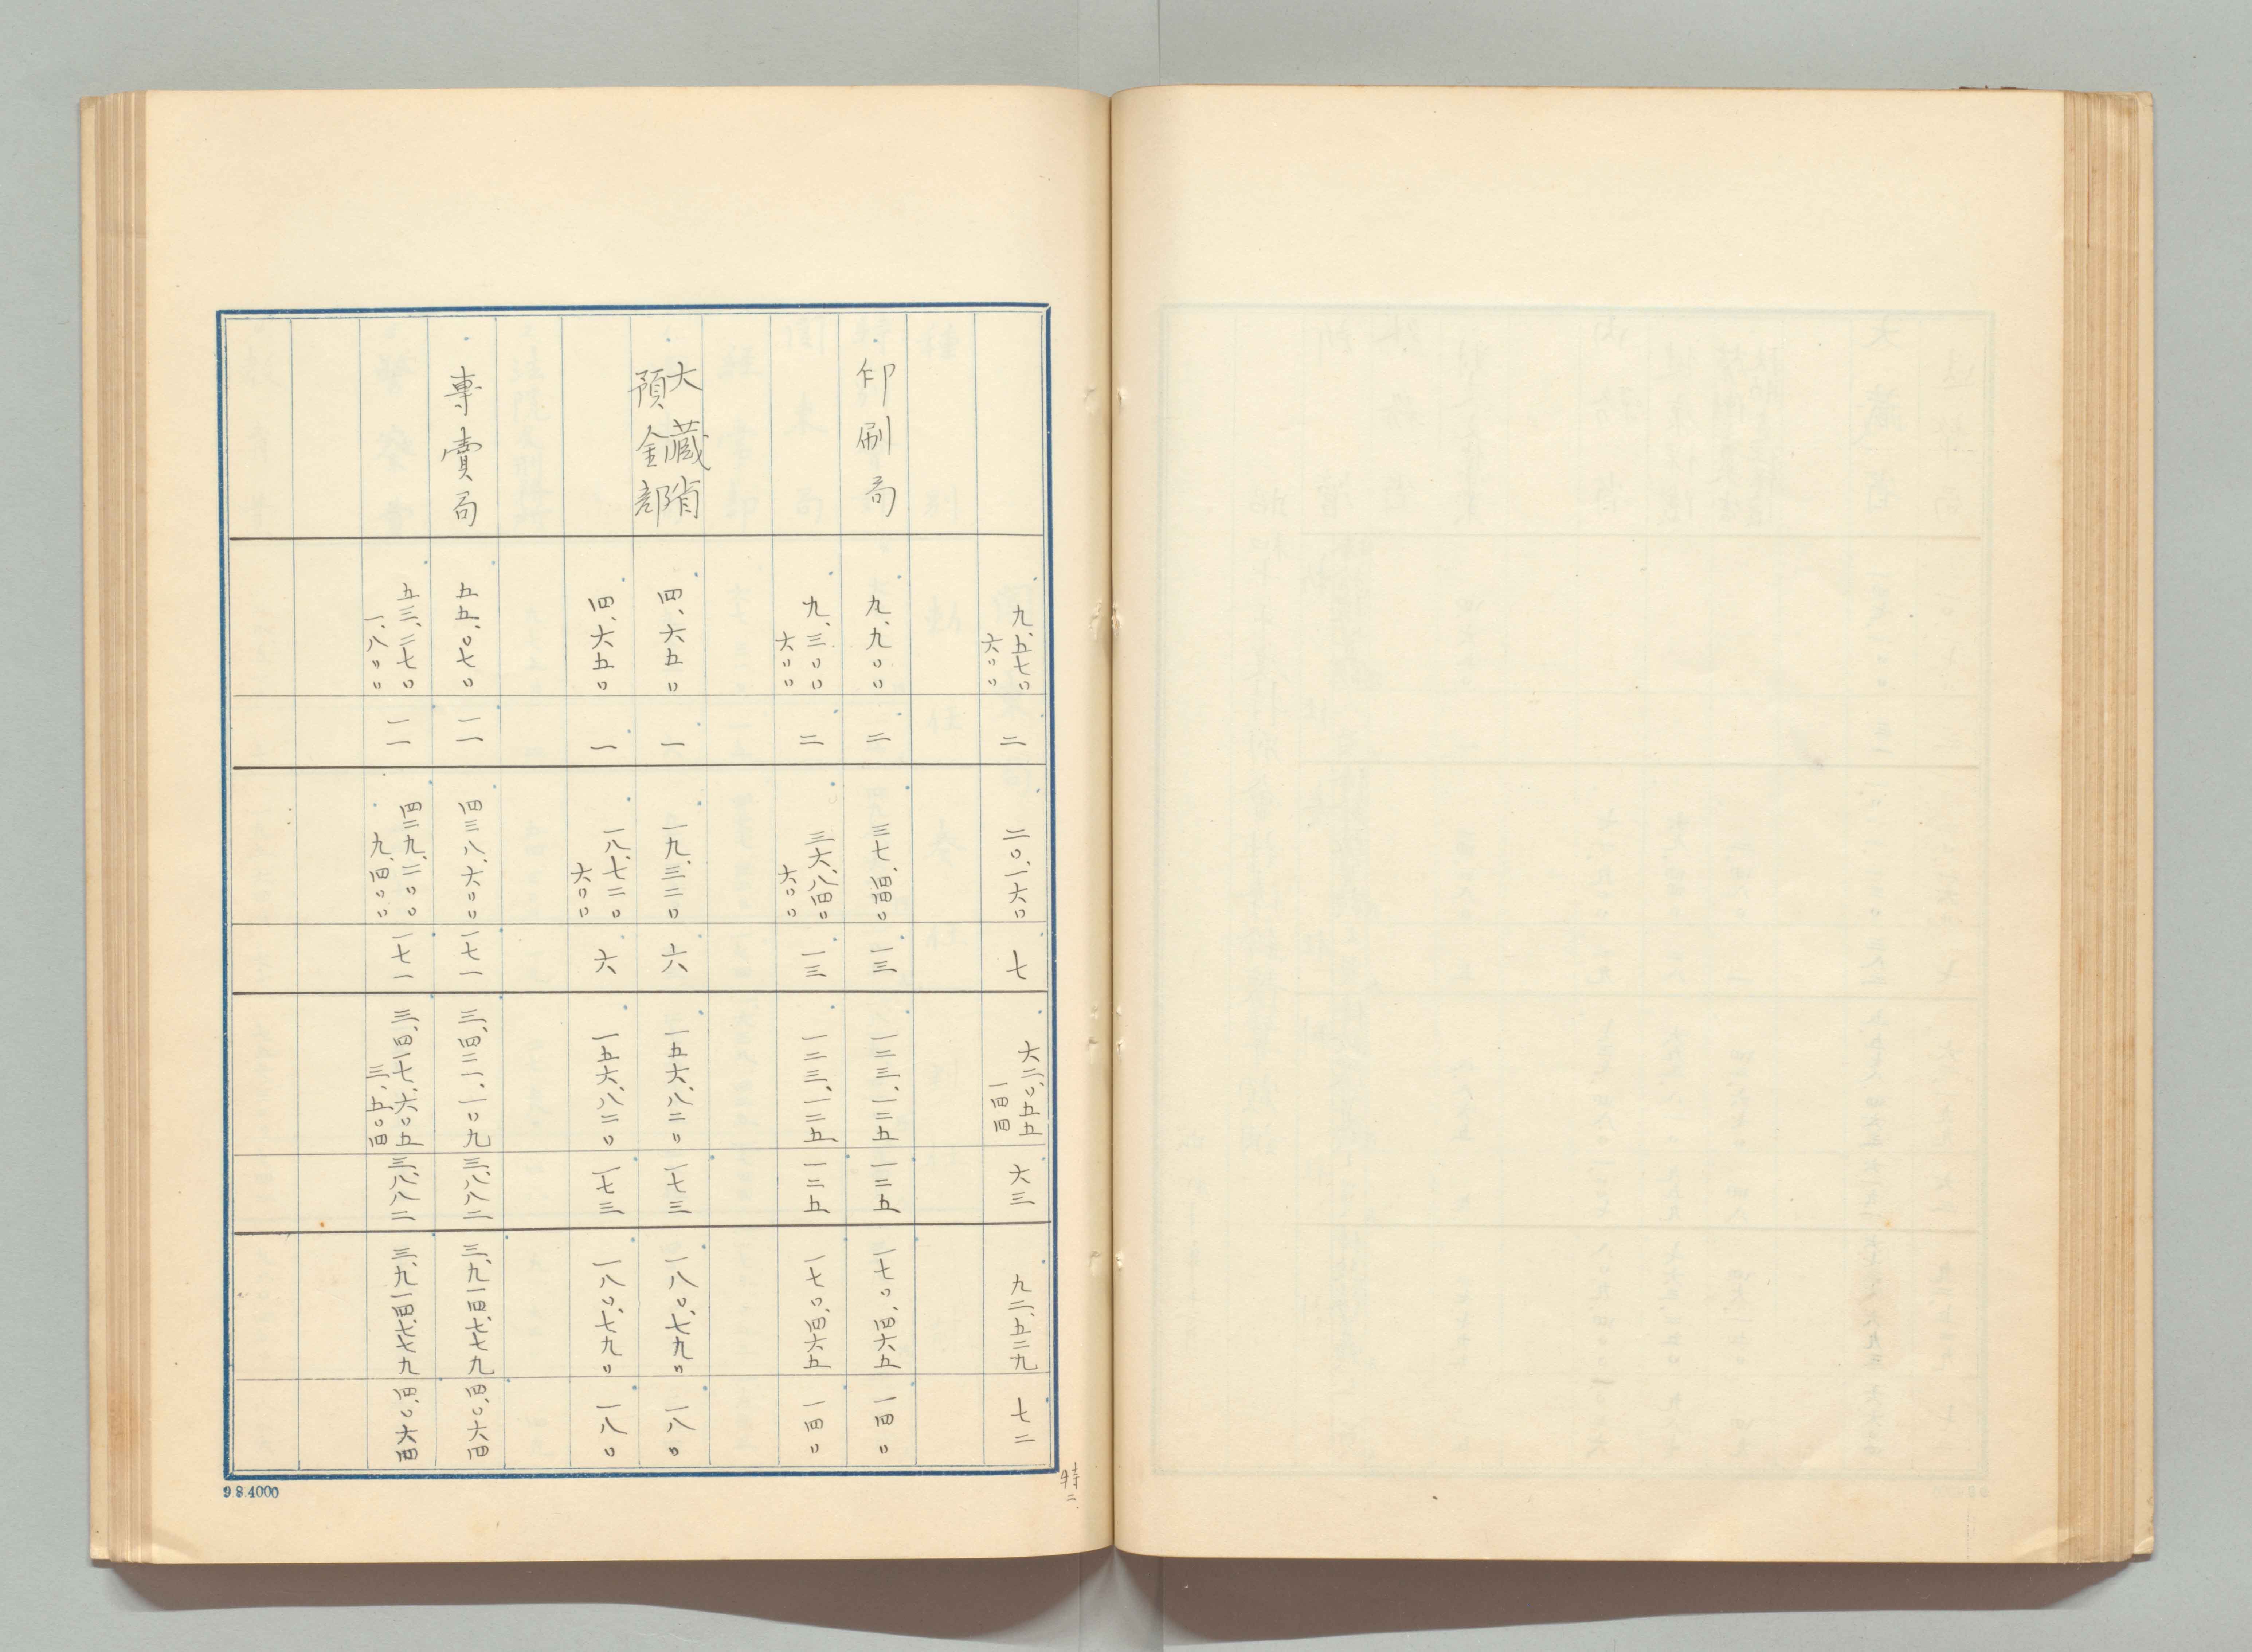 九、五七〇 六〇〇 二 二〇、一六〇 七 六二、〇五五 一四四 六三 九二、五二九 七二
印刷局 九、九〇〇 二 三七、四四〇 一三 一二三、一二五 一二五 一七〇、四六五 一四〇
九、三〇〇 六〇〇 二 三六、八四〇 六〇〇 一三 一二三、一二五 一二五 一七〇、四六五 一四〇
大藏省
預金部 四、六五〇 一 一九、三二〇 六 一五六、八二〇 一七三 一八〇、七九〇 一八〇
四、六五〇 一 一八、七二〇 六〇〇 六 一五六、八二〇 一七三 一八〇、七九〇 一八〇
專賣局 五五、〇七〇 一一 四三八、六〇〇 一七一 三、四二一、一〇九 三、八八二 三、九一四、七七九 四、〇六四
五三、二七〇 一、八〇〇 一一 四二九、二〇〇 九、四〇〇 一七一 三、四一七、六〇五 三、五〇四 三、八八二 三、九一四、七七九 四、〇六四
特二
9 8.4000